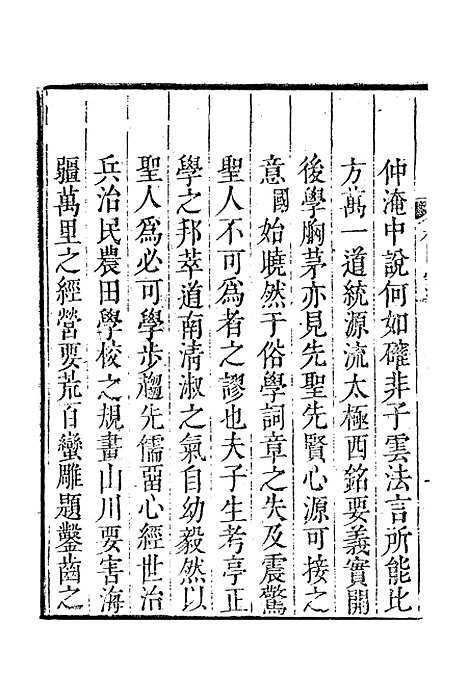 仲淹中說何如確非子雲法言所能比
方萬一道統源流太極西銘要義實開
後學胸茅亦見先聖先賢心源可接之
意國始曉然于俗學詞章之失及震驚
聖人不可為者之謬也夫子生考亭正
學之邦萃道南清淑之氣自幼毅然以
聖人為必可學步趨先儒留心經世治
兵治民農田學校之規畫山川要害海
疆萬里之經營要荒百蠻雕題鑿齒之